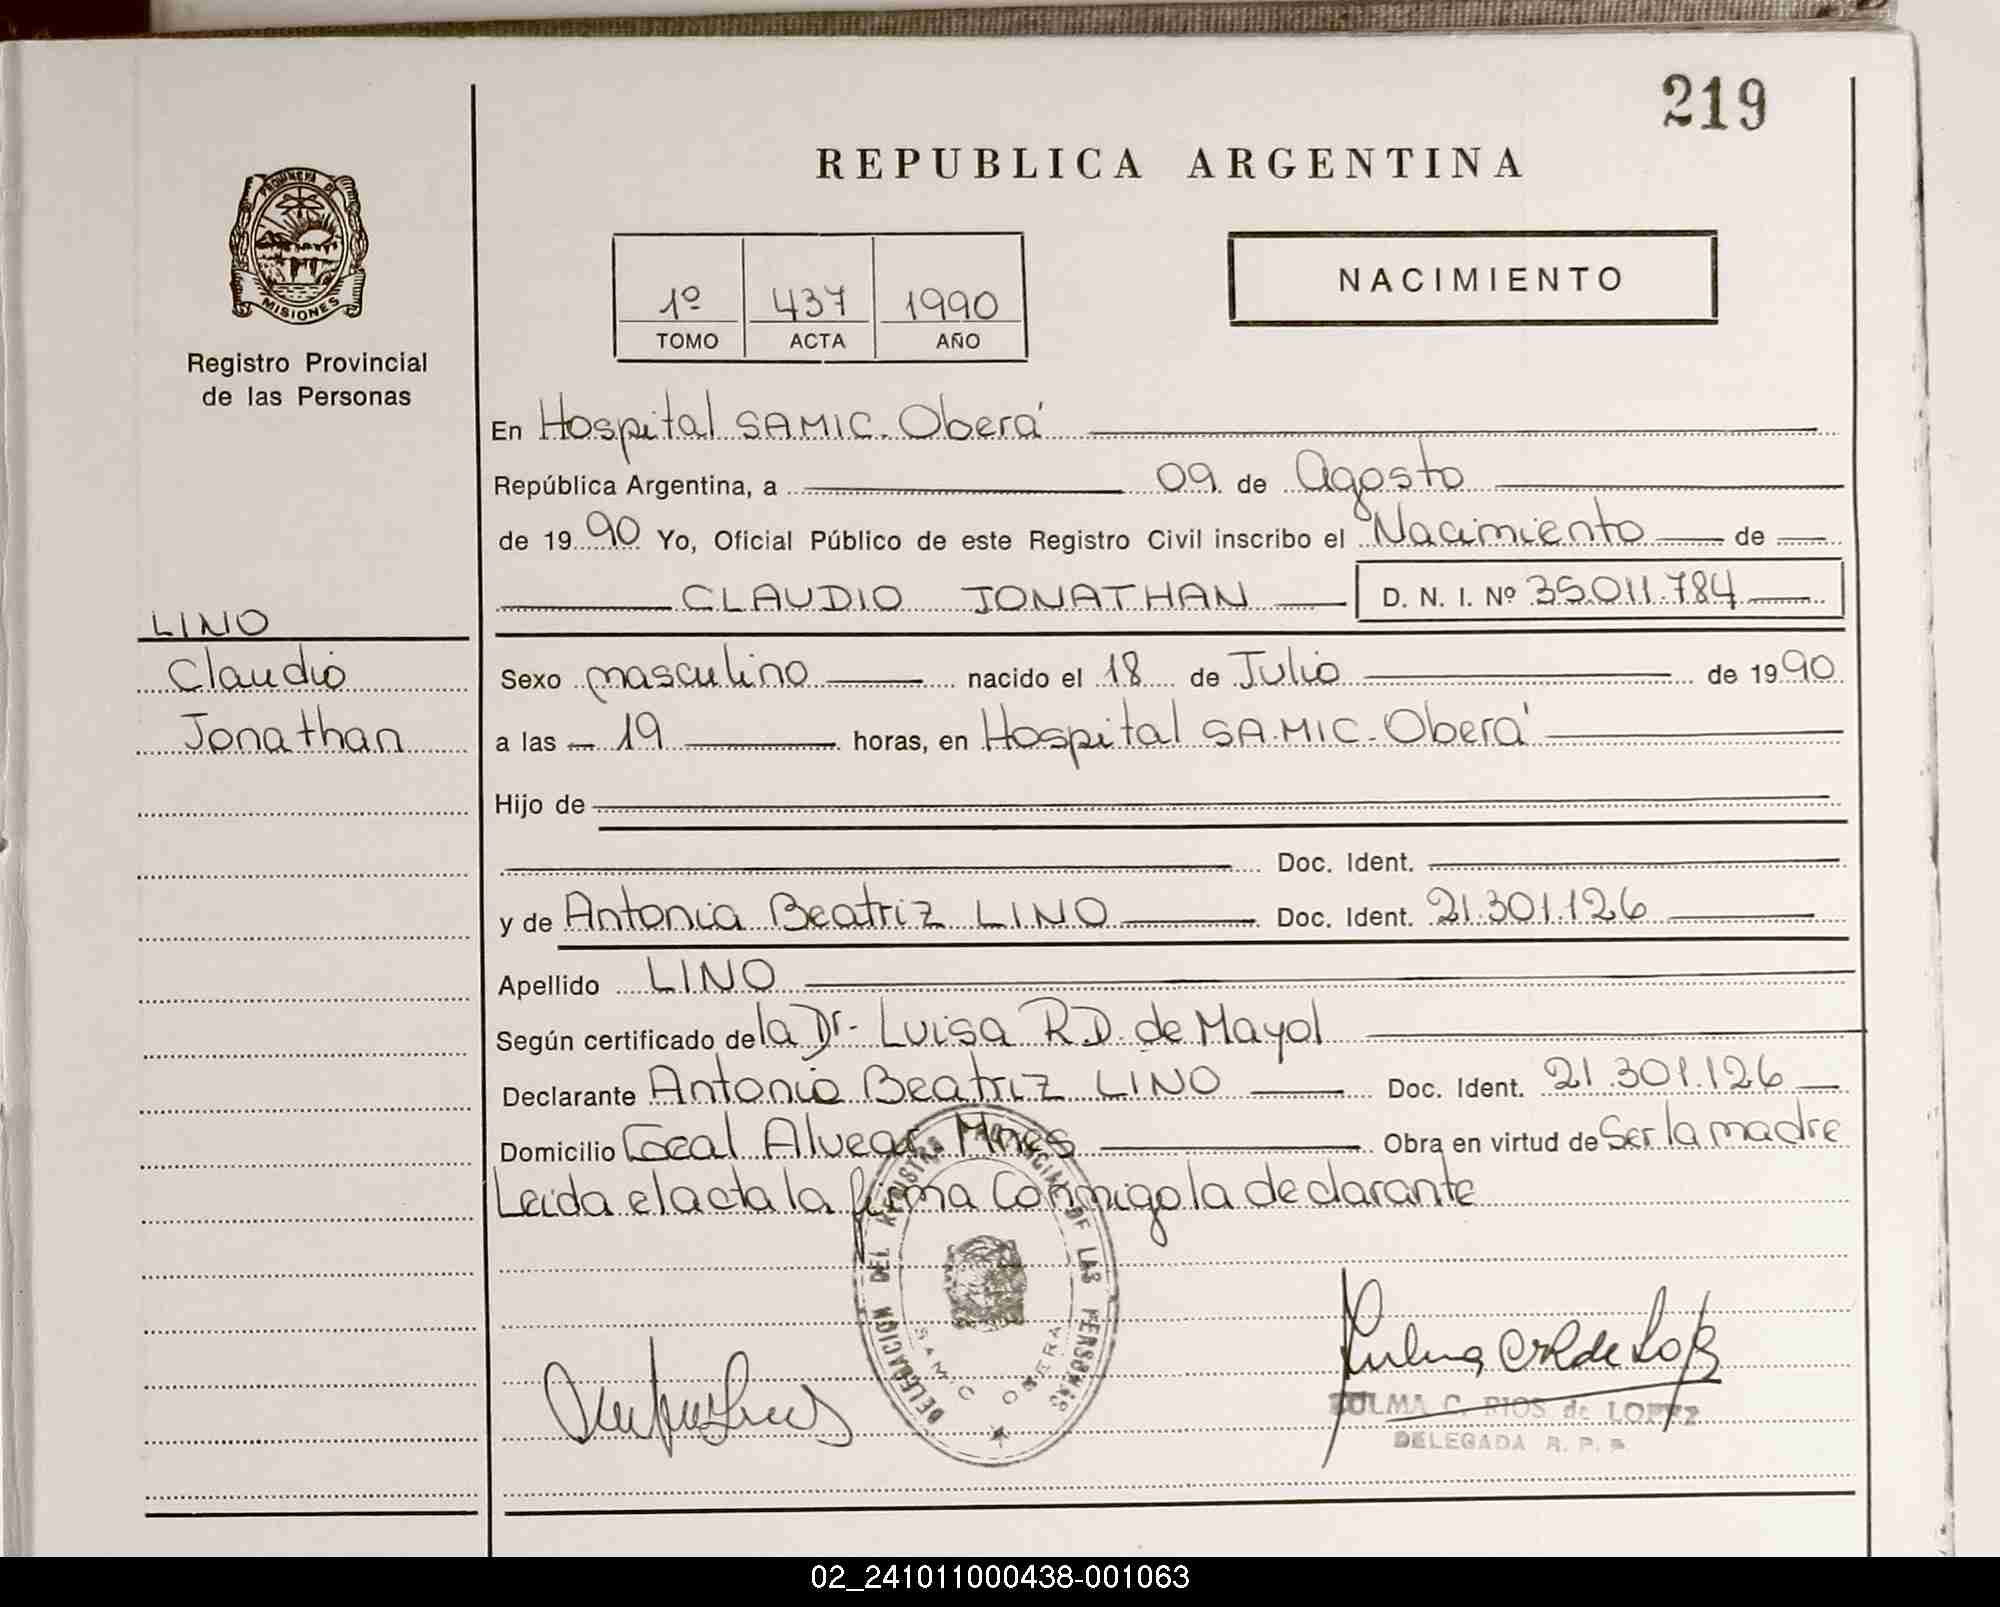 219
REPUBLICA ARGENTINA
PROVINCIA DE
MISIONES
Registro Provincial
de las Personas
1º 437 1990
TOMO ACTA AÑO
NACIMIENTO
En Hospital SAMIC. Oberá
República Argentina, a 09 de Agosto
de 1990 Yo, Oficial Público de este Registro Civil inscribo el Nacimiento de
CLAUDIO JONATHAN D. N. I. Nº 35.011.784
LINO
Claudio
Jonathan
Sexo masculino nacido el 18 de Julio de 1990
a las 19 horas, en Hospital SA.MIC. Oberá
Hijo de
Doc. Ident.
y de Antonia Beatriz LINO Doc. Ident. 21.301.126
Apellido LINO
Según certificado de la Dr. Luisa R.D. de Mayol
Declarante Antonia Beatriz LINO Doc. Ident. 21.301.126
Domicilio Local Alvear Mnes Obra en virtud de Ser la madre
Leida el acta la firma Conmigo la declarante
DELEGACION DEL REGISTRO PROVINCIAL DE LAS PERSONAS
SAMIC OBERA
ZULMA C. RIOS de LOPEZ
DELEGADA R. P. P.
02_241011000438-001063